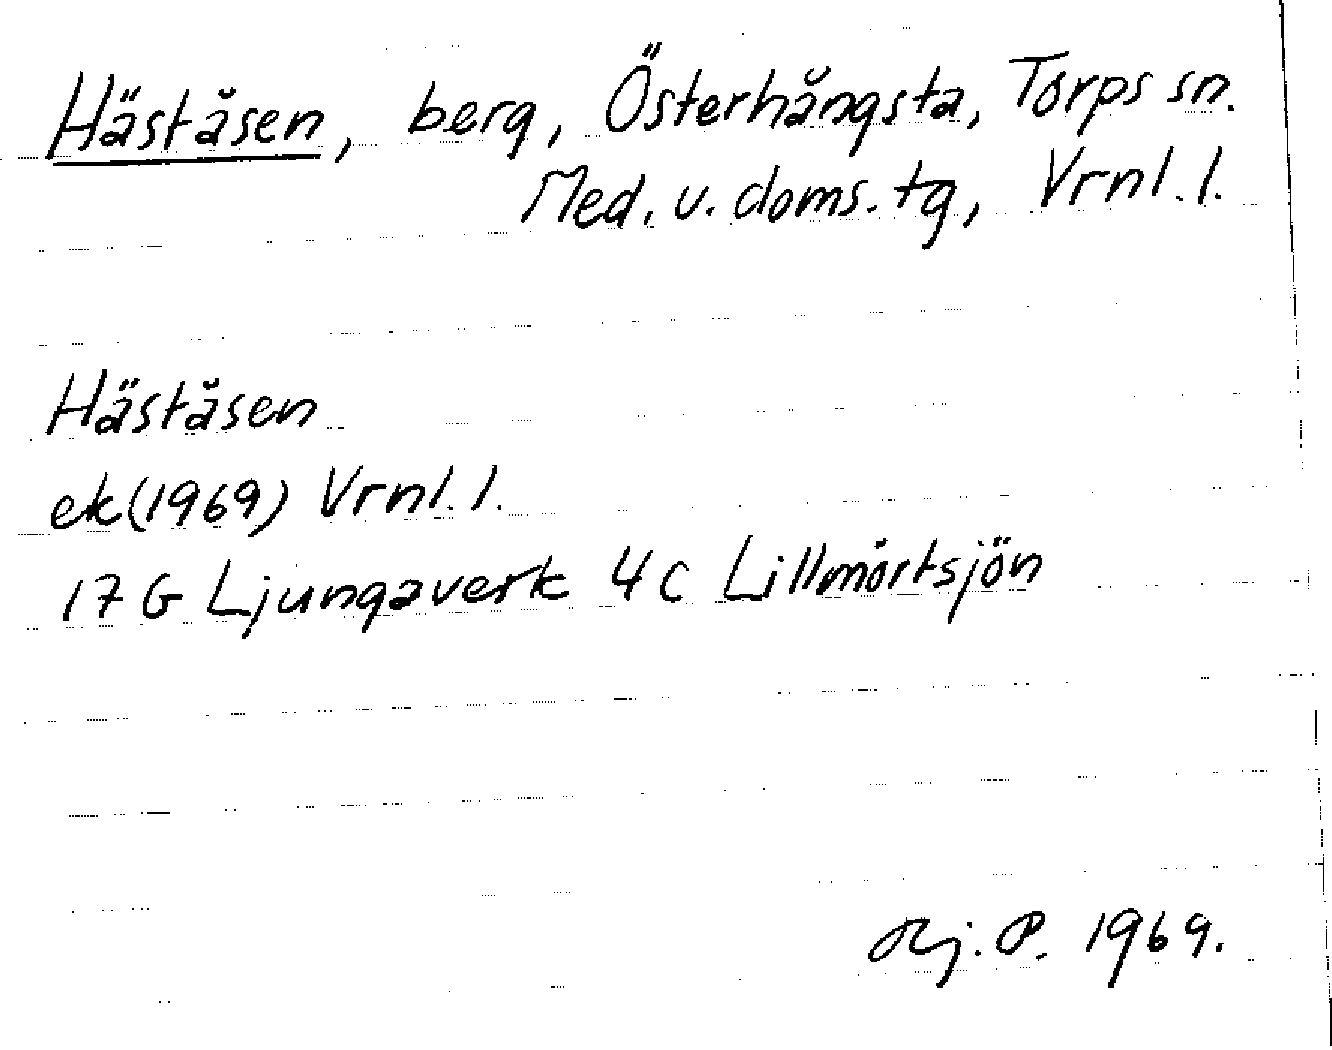 Häståsen, berg, Österhångsta, Torps sn.
Med. v. doms. tg, Vrnl. l.
Häståsen
ek (1969) Vrnl. l.
17 G Ljungaverk 4 c Lillmörtsjön
P. 1969.